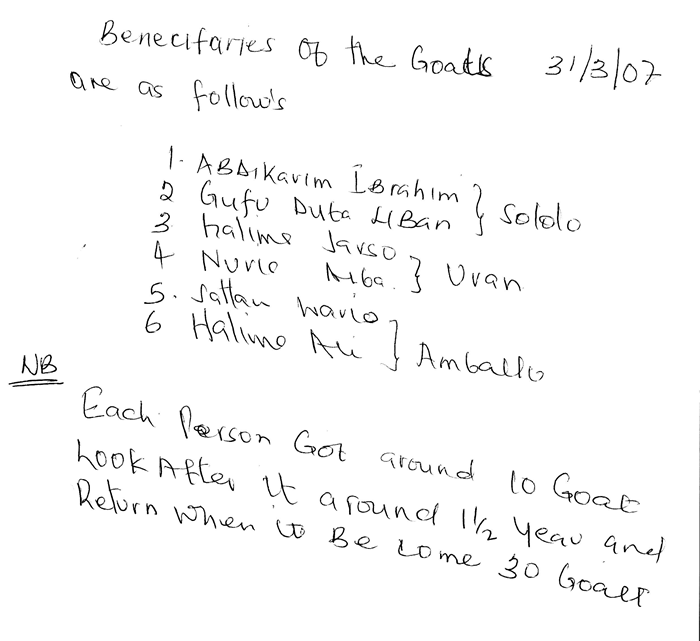 Benecifaries of the Goats 31/3/07
are as follow's
1. ABDIKarim IBrahim
2 Gufu Duba LIBan } Sololo
3 halime Jarso
4 Nurie Aiba. } Uran
5. Sallau wario
6 Halime Ali } Amballo
NB
Each Person Got around 10 Goat
Look After it around 1 1/2 Year and
Return when it Be come 30 Goats